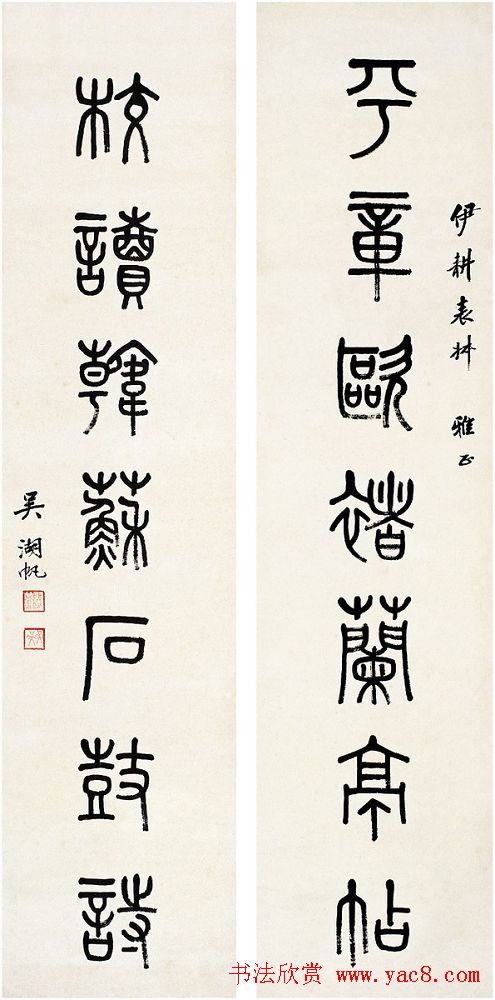 伊耕表 雅正
平章歐褚蘭亭帖
校讀韓蘇石鼓詩
吳湖帆
书法欣赏 www.yac8.com